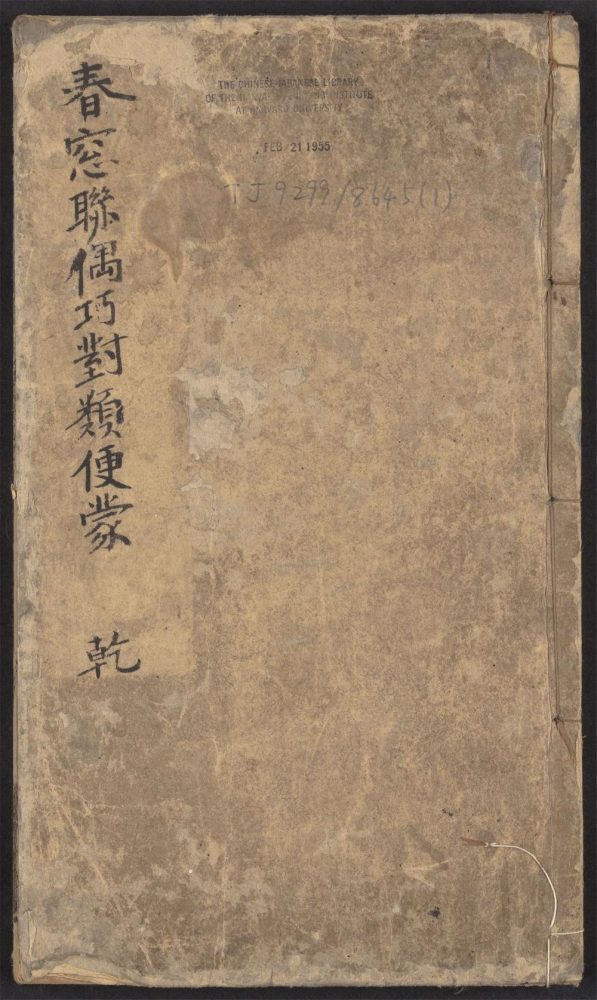 春窓聯偶巧對類便蒙
乾
THE CHINESE-JAPANESE LIBRARY
OF THE HARVARD-YENCHING INSTITUTE
AT HARVARD UNIVERSITY
FEB 21 1955
TJ 9299/8645(1)